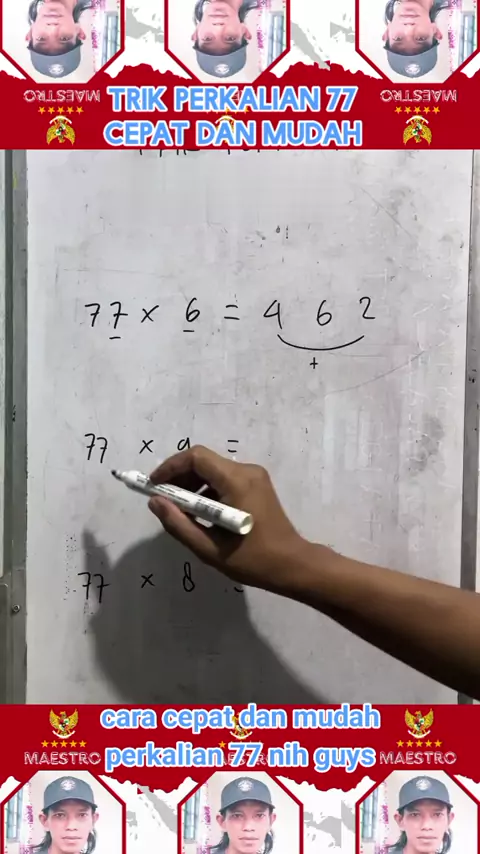 MAESTRO MAESTRO
TRIK PERKALIAN 77
CEPAT DAN MUDAH
77 x 6 = 4 6 2
+
77 x 9 =
77 x 8 =
cara cepat dan mudah
MAESTRO MAESTRO
perkalian 77 nih guys